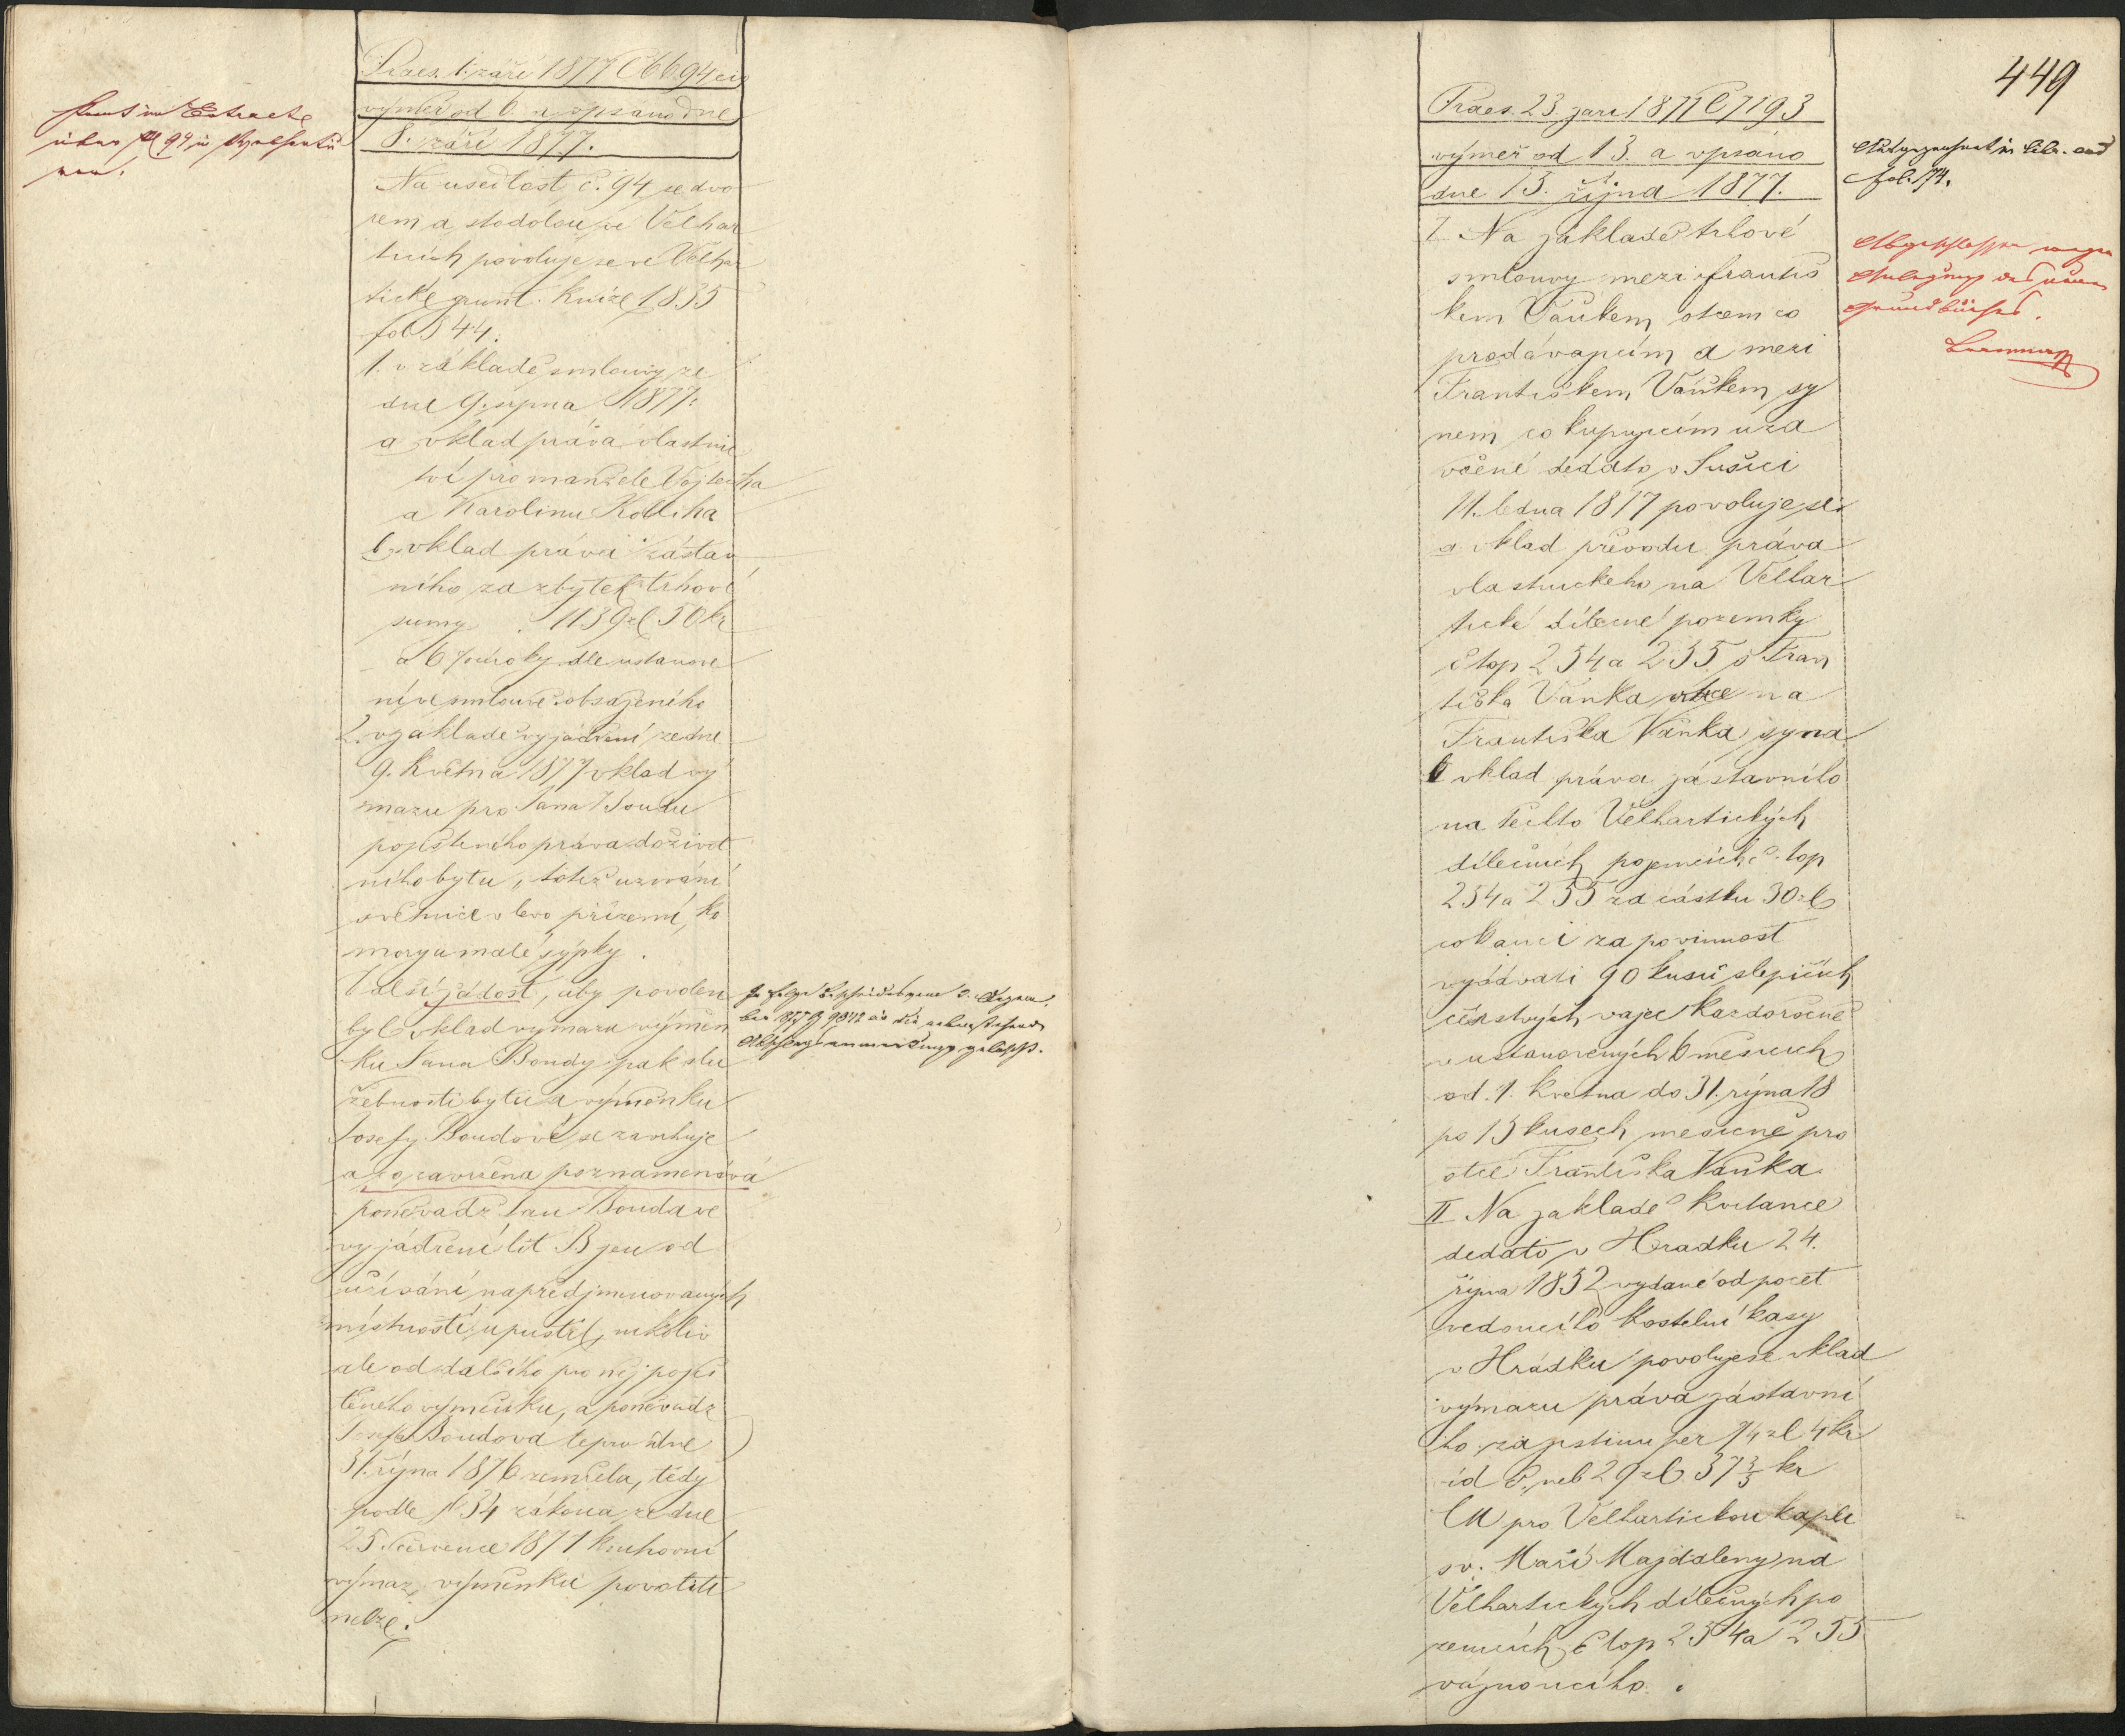 Praes. 1. září 1877 Č 6694 civ
výměr od 6. a vpsáno dne
8. září 1877.
Na usedlost č. 94 se dvo
rem a stodolou ve Velhar
ticích povoluje se ve Velhar
tické grunt. knize 1835
fol 544.
1. v základě smlouvy ze
dne 9. srpna 1877:
a vklad práva vlastnic
tví pro manžele Vojtěcha
a Karolinu Koliha
b, vklad práva zástav
ního za zbytek trhové
sumy 1139 zl 50 kr
a 6% úroky dle ustanove
ní ve smlouvě obsaženého
2. v základě vyjádření ze dne
9. května 1877 vklad vý
mazu pro Jana Boudu
pojištěného práva doživot
ního bytu, totiž užívání
světnice v levo přízemí, ko
mory a malé sýpky.
Další žádost, aby povolen
byl vklad výmazu výměn
ku Jana Boudy pak slu
žebnosti bytu a výměnku
Josefy Boudové se zavrhuje
a co zavržena poznamenává
poněvadž Jan Bouda ve
vyjádření lit B jen od
užívání napřed jmenovaných
místností upustil, nikoliv
ale od dalšího pro něj poji
štěného výměnku, a poněvadž
Josefa Boudová teprv dne
31. října 1876 zemřela, tedy
podle § 34 zákona ze dne
25. července 1871 knihovní
výmaz výměnku povoliti
nelze.
449
Praes. 23. září 1877 Č 7193
výměr od 13. a vpsáno
dne 15. října 1877.
fol. 174.
Grundbuches.
I. Na základě trhové
smlouvy mezi Františ
kem Vaňkem otcem co
prodávajícím a mezi
Františkem Vaňkem sy
nem co kupujícím uza
vřené dedato v Sušici
11. ledna 1877 povoluje se:
a vklad převodu práva
vlastnického na Velhar
tické dílečné pozemky
č top 254 a 255 s Fran
tiška Vaňka otce na
Františka Vaňka syna
b vklad práva zástavního
na těchto Velhartických
dílečných pozemcích č. top
254 a 255 za částku 30 zl
co kauci za povinnost
vydávati 90 kusů slepičích
čerstvých vajec každoročně
v ustanovených 6 měsících
od 1. května do 31. října 18
po 15 kusech měsíčně pro
otce Františka Vaňka.
II Na základě kvitance
dedato v Hradku 24.
října 1852 vydané od počet
vedoucího kostelní kasy
v Hrádku povoluje se vklad
výmazu práva zástavní
ho za jistinu per 74 zl 4 kr
vid č. neb 29 zl 37 3/5 kr
CM pro Velhartickou kapli
sv. Maří Majdaleny na
Velhartických dílečných po
zemcích č top 254 a 255
váznoucího.